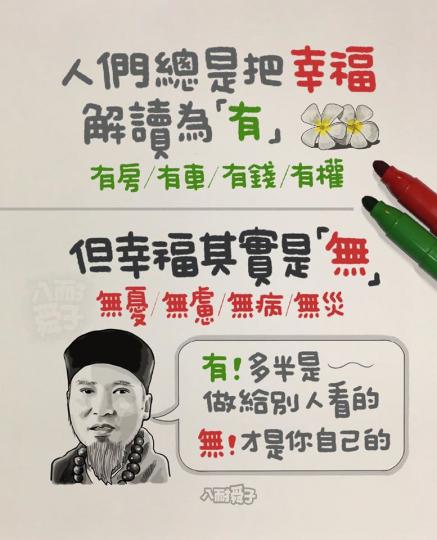 人們總是把幸福
解讀為「有」
有房/有車/有錢/有權
但幸福其實是「無」
無憂/無慮/無病/無災
有！多半是
做給別人看的
無！才是你自己的
八耐舜子
八耐舜子